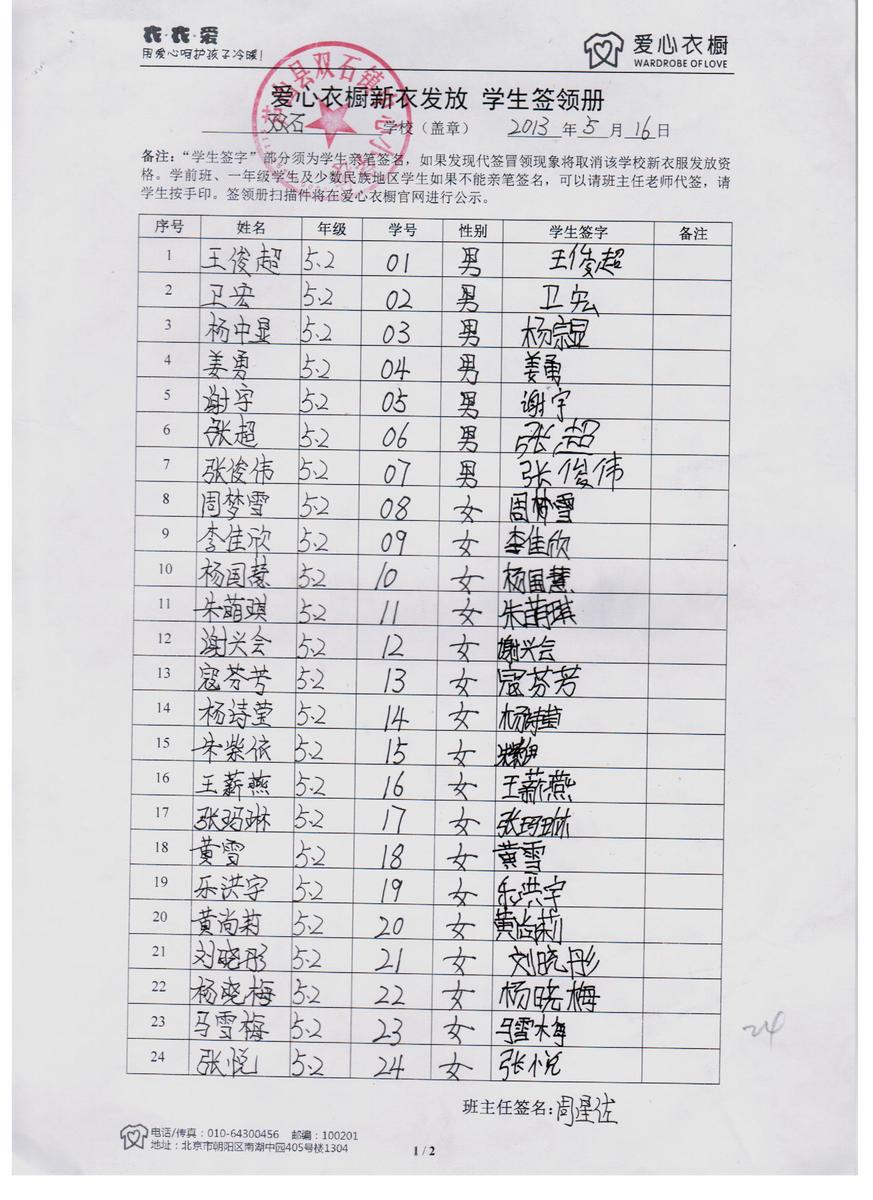 衣·衣·爱
用爱心呵护孩子冷暖!
爱心衣橱
WARDROBE OF LOVE
爱心衣橱新衣发放 学生签领册
双石 学校（盖章） 2013 年 5 月 16 日
备注：“学生签字”部分须为学生亲笔签名，如果发现代签冒领现象将取消该学校新衣服发放资
格。学前班、一年级学生及少数民族地区学生如果不能亲笔签名，可以请班主任老师代签，请
学生按手印。签领册扫描件将在爱心衣橱官网进行公示。
序号 姓名 年级 学号 性别 学生签字 备注
1 王俊超 5.2 01 男 王俊超
2 卫宏 5.2 02 男 卫宏
3 杨中显 5.2 03 男 杨宗显
4 姜勇 5.2 04 男 姜勇
5 谢宇 5.2 05 男 谢宇
6 张超 5.2 06 男 张超
7 张俊伟 5.2 07 男 张俊伟
8 周梦雪 5.2 08 女 周梦雪
9 李佳欣 5.2 09 女 李佳欣
10 杨国慧 5.2 10 女 杨国慧
11 朱萌琪 5.2 11 女 朱萌琪
12 谢兴会 5.2 12 女 谢兴会
13 寇芬芳 5.2 13 女 寇芬芳
14 杨诗莹 5.2 14 女 杨诗莹
15 宋柴依 5.2 15 女
16 王薪燕 5.2 16 女 王薪燕
17 张玛琳 5.2 17 女 张玛琳
18 黄雪 5.2 18 女 黄雪
19 乐洪宇 5.2 19 女 乐洪宇
20 黄尚莉 5.2 20 女 黄尚莉
21 刘晓彤 5.2 21 女 刘晓彤
22 杨晓梅 5.2 22 女 杨晓梅
23 马雪梅 5.2 23 女 马雪梅
24 张悦 5.2 24 女 张悦
24
班主任签名：周星佐
电话/传真：010-64300456 邮编：100201
地址：北京市朝阳区南湖中园405号楼1304
1 / 2